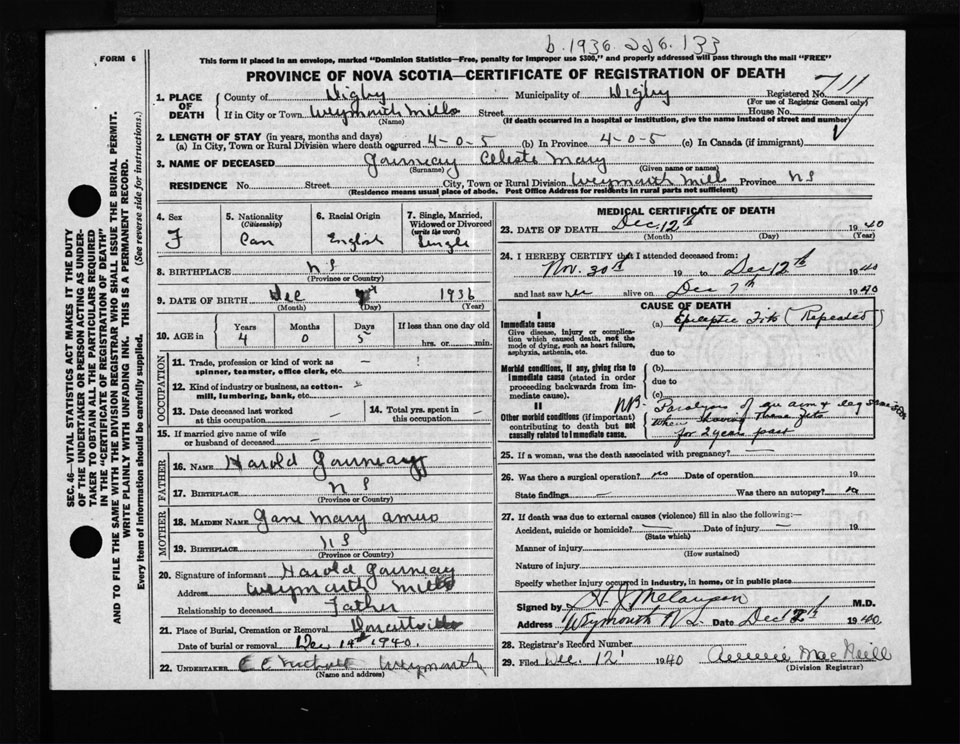 b. 1936. 226. 133
FORM 6
This form if placed in an envelope, marked "Dominion Statistics—Free, penalty for improper use $300," and properly addressed will pass through the mail "FREE"
PROVINCE OF NOVA SCOTIA—CERTIFICATE OF REGISTRATION OF DEATH
SEC. 46—VITAL STATISTICS ACT MAKES IT THE DUTY
OF THE UNDERTAKER OR PERSON ACTING AS UNDER-
TAKER TO OBTAIN ALL THE PARTICULARS REQUIRED
IN THE "CERTIFICATE OF REGISTRATION OF DEATH"
AND TO FILE THE SAME WITH THE DIVISION REGISTRAR WHO SHALL ISSUE THE BURIAL PERMIT.
WRITE PLAINLY WITH UNFADING INK. THIS IS A PERMANENT RECORD.
Every item of information should be carefully supplied. (See reverse side for instructions.)
1. PLACE OF DEATH
County of Digby Municipality of Digby Registered No. 711
(For use of Registrar General only)
If in City or Town Weymouth Mills Street House No.
(Name) (If death occurred in a hospital or institution, give the name instead of street and number)
2. LENGTH OF STAY (in years, months and days)
(a) In City, Town or Rural Division where death occurred 4-0-5 (b) In Province 4-0-5 (c) In Canada (if immigrant)
3. NAME OF DECEASED Celeste Mary
(Surname) (Given name or names)
RESIDENCE No. Street City, Town or Rural Division Weymouth Mills Province NS
(Residence means usual place of abode. Post Office Address for residents in rural parts not sufficient)
4. Sex F
5. Nationality (Citizenship) Can
6. Racial Origin English
7. Single, Married, Widowed or Divorced (write the word) Single
8. BIRTHPLACE NS
(Province or Country)
9. DATE OF BIRTH Dec 1936
(Month) (Day) (Year)
10. AGE in Years 4 Months 0 Days 5 If less than one day old hrs. or min.
OCCUPATION
11. Trade, profession or kind of work as spinner, teamster, office clerk, etc. —
12. Kind of industry or business, as cotton-mill, lumbering, bank, etc.
13. Date deceased last worked at this occupation —
14. Total yrs. spent in this occupation —
15. If married give name of wife or husband of deceased —
FATHER
16. NAME Harold
17. BIRTHPLACE NS
(Province or Country)
MOTHER
18. MAIDEN NAME Jane Mary
19. BIRTHPLACE NS
(Province or Country)
20. Signature of informant Harold
Address Weymouth Mills
Relationship to deceased Father
21. Place of Burial, Cremation or Removal
Date of burial or removal Dec 14th 1940.
22. UNDERTAKER Weymouth
(Name and address)
MEDICAL CERTIFICATE OF DEATH
23. DATE OF DEATH Dec. 12th 1940
(Month) (Day) (Year)
24. I HEREBY CERTIFY that I attended deceased from:
Nov. 30th 19 to Dec 12th 1940
and last saw her alive on Dec 7th 1940
CAUSE OF DEATH
I
Immediate cause
Give disease, injury or complication which caused death, not the mode of dying, such as heart failure, asphyxia, asthenia, etc.
(a) Epileptic Fits (Repeated)
due to
Morbid conditions, if any, giving rise to immediate cause (stated in order proceeding backwards from immediate cause).
(b)
due to
(c)
II
Other morbid conditions (if important) contributing to death but not causally related to immediate cause.
N.B. Paralysis of arm & leg
when having these fits
for 2 years past
25. If a woman, was the death associated with pregnancy? —
26. Was there a surgical operation? no Date of operation 19
State findings — Was there an autopsy? no
27. If death was due to external causes (violence) fill in also the following:—
Accident, suicide or homicide? — Date of injury — 19
(State which)
Manner of injury
(How sustained)
Nature of injury
Specify whether injury occurred in industry, in home, or in public place
Signed by Melanson M.D.
Address Weymouth N.S. Date Dec 12th 1940
28. Registrar's Record Number
29. Filed Dec. 12 1940 Annie MacNeill
(Division Registrar)